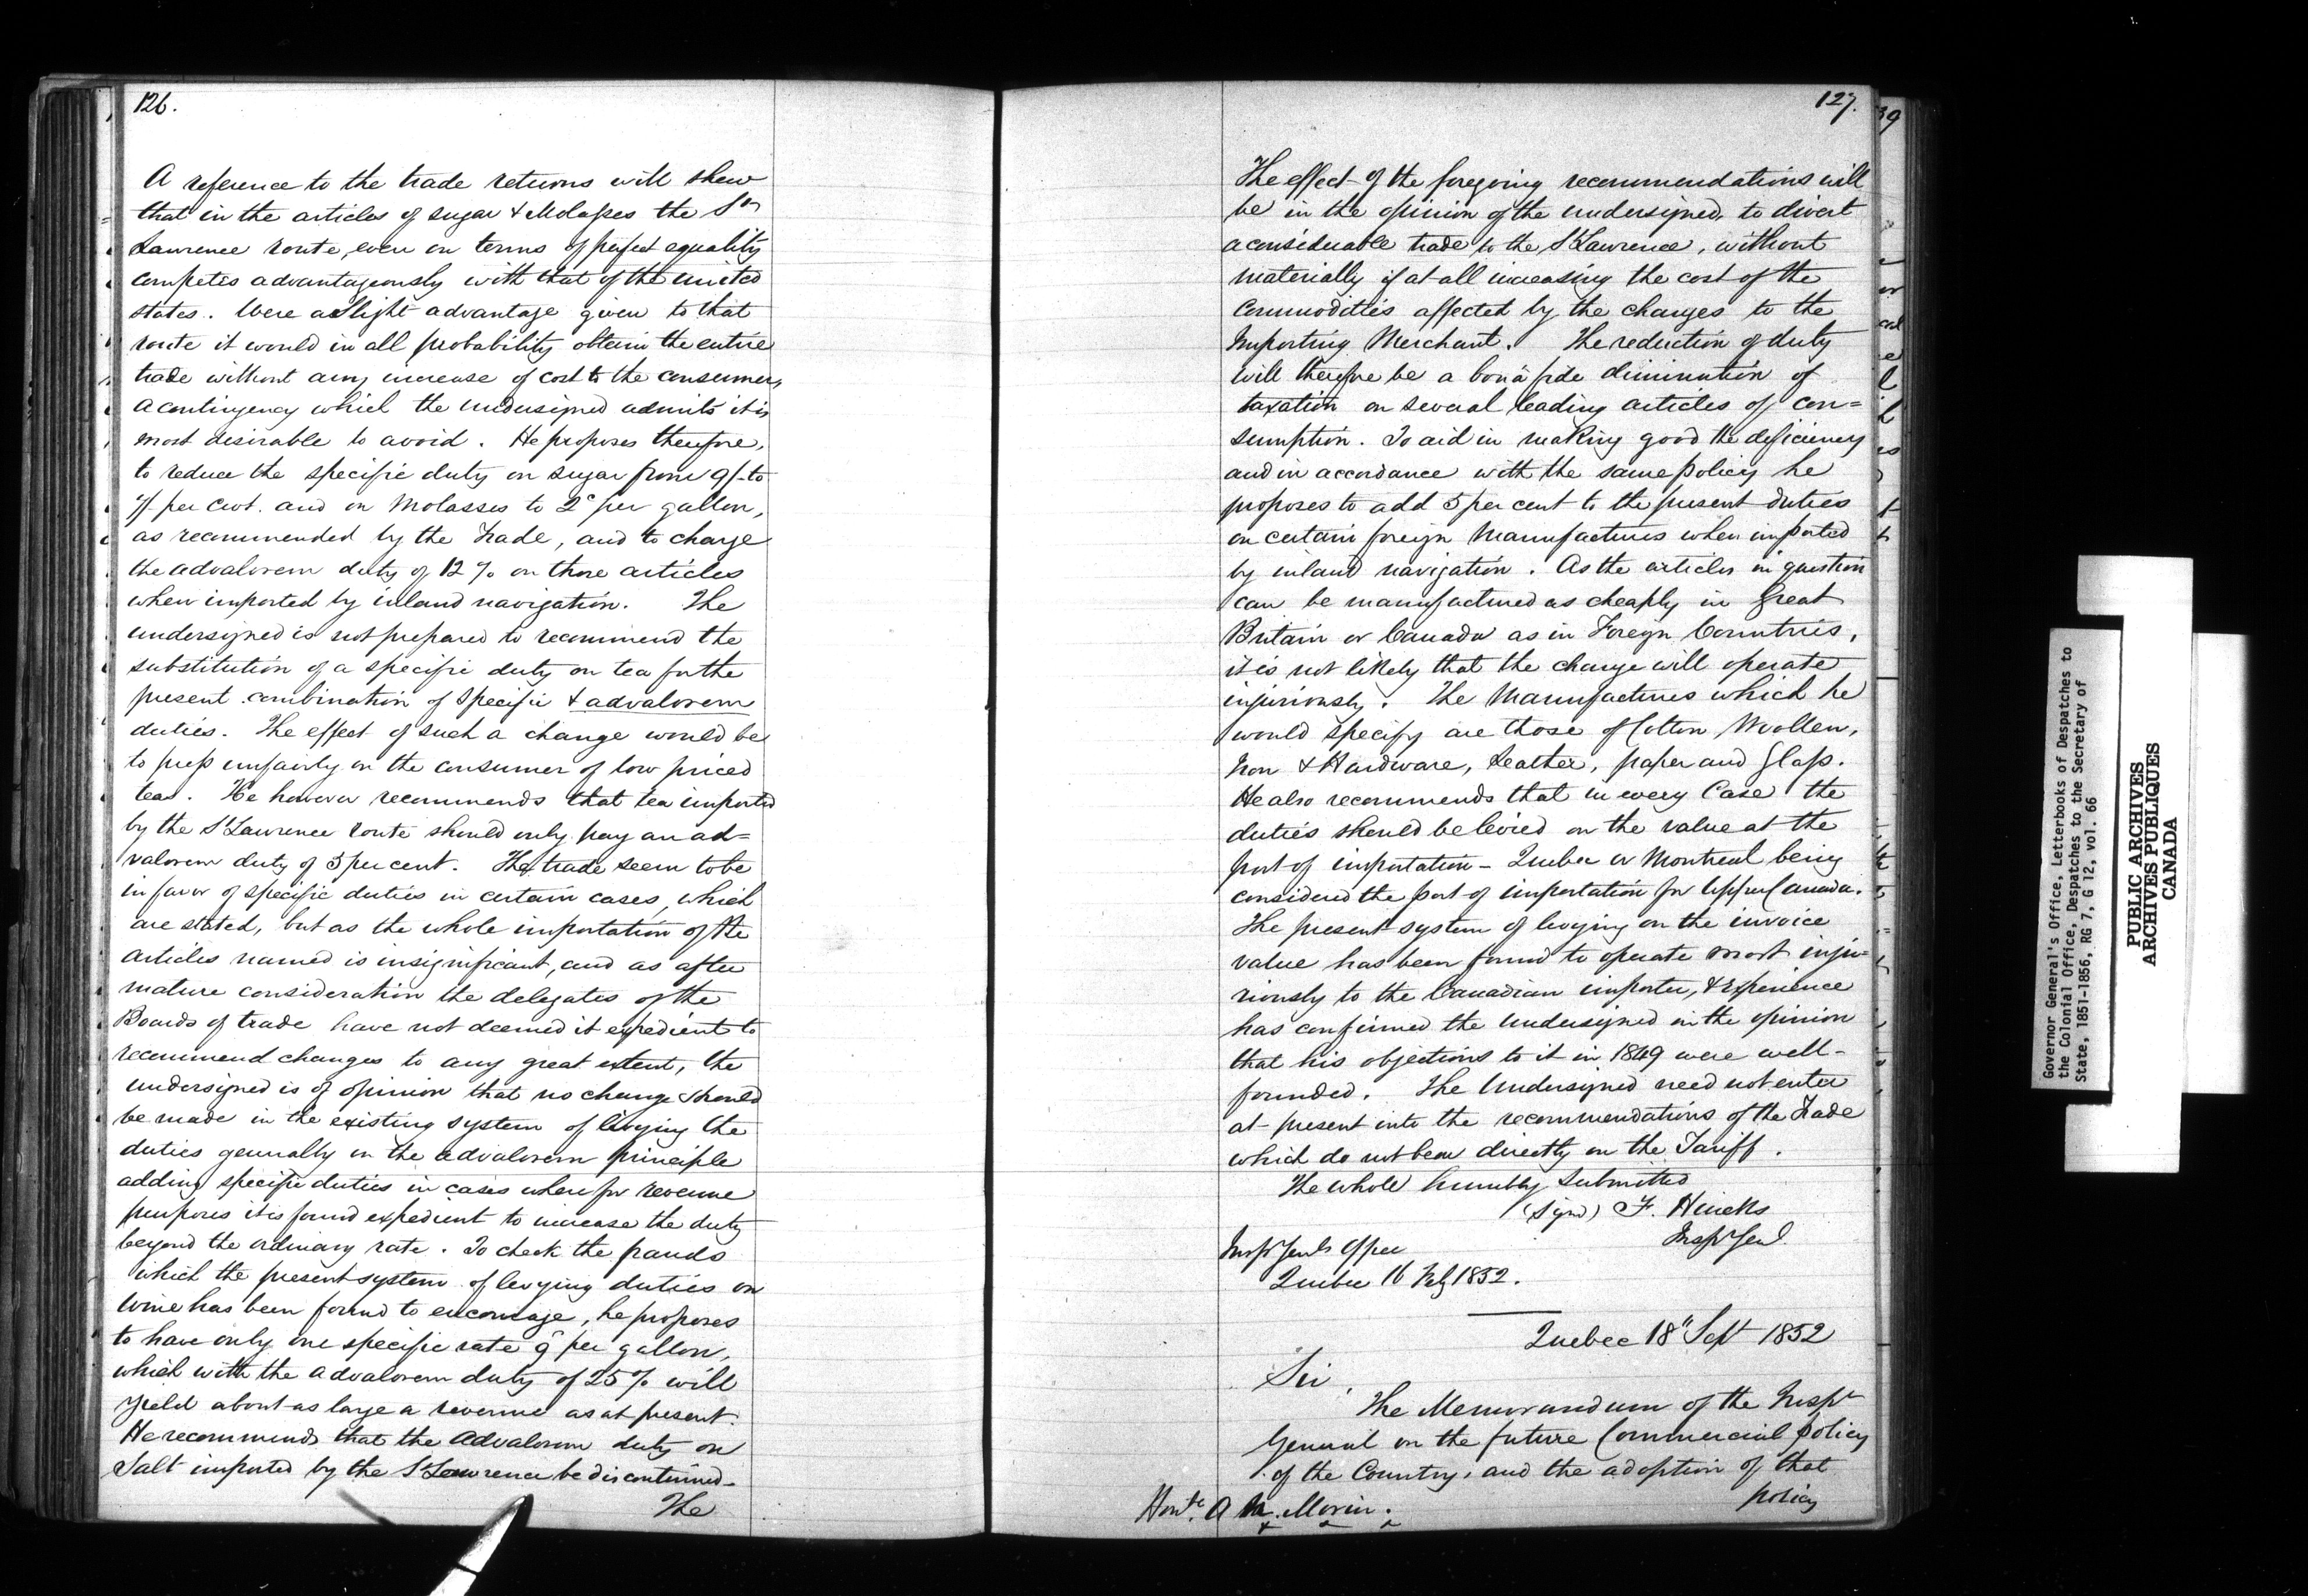 126.
A reference to the trade returns will shew
that in the articles of sugar & Molasses the St
Lawrence route, even on terms of perfect equality
competes advantageously with that of the united
states. Were a slight advantage given to that
route it would in all probability obtain the entire
trade without any increase of cost to the consumer,
a contingency which the undersigned admits it is
most desirable to avoid. He proposes therefore,
to reduce the specific duty on sugar from 9/- to
7/- per Cwt. and on Molasses to 2d per gallon,
as recommended by the Trade, and to charge
the advalorem duty of 12% on those articles
when imported by inland navigation. The
undersigned is not prepared to recommend the
substitution of a specific duty on tea for the
present combination of specific & advalorem
duties. The effect of such a change would be
to press unfairly on the consumer of low priced
teas. He however recommends that tea imported
by the St Lawrence route should only pay an ad=
valorem duty of 5 per cent. The trade seem to be
in favor of specific duties in certain cases, which
are stated, but as the whole importation of the
articles named is insignificant, and as after
mature consideration the delegates of the
Boards of trade have not deemed it expedient to
recommend changes to any great extent, the
undersigned is of opinion that no change should
be made in the existing system of levying the
duties generally on the advalorem principle
adding specific duties in cases where for revenue
purposes it is found expedient to increase the duty
beyond the ordinary rate. To check the frauds
which the present system of levying duties on
wine has been found to encourage, he proposes
to have only one specific rate per gallon,
which with the advalorem duty of 25% will
yield about as large a revenue as at present.
He recommends that the Advalorem duty on
Salt imported by the St Lawrence be discontinued.
The
127.
The effect of the foregoing recommendations will
be in the opinion of the undersigned, to divert
a considerable trade to the St Lawrence, without
materially if at all increasing the cost of the
Commodities affected by the changes to the
Importing Merchant. The reduction of duty
will therefore be a bonâ fide diminution of
taxation on several leading articles of con=
sumption. To aid in making good the deficiency
and in accordance with the same policy he
proposes to add 5 per cent to the present duties
on certain foreign Manufactures when imported
by inland navigation. As the articles in question
can be manufactured as cheaply in Great
Britain or Canada as in Foreign Countries,
it is not likely that the change will operate
injuriously. The Manufactures which he
would specify are those of Cotton Woollen,
Iron & Hardware, Leather, paper and Glass.
He also recommends that in every Case the
duties should be levied on the value at the
port of importation - Quebec or Montreal being
considered the port of importation for Upper Canada.
The present system of levying on the invoice
value has been found to operate most inju=
riously to the Canadian importer, & Experience
has confirmed the undersigned in the opinion
that his objections to it in 1849 were well-
founded. The Undersigned need not enter
at present into the recommendations of the Trade
which do not bear directly on the Tariff.
The whole humbly submitted
(Signd) F. Hincks
Inspr Genl.
Inspr Genls Office
Quebec 16 Feby 1852.
Quebec 18th Sept 1852
Sir,
The Memorandum of the Inspr
General on the future Commercial policy
of the Country, and the adoption of that
policy
Honble A N. Morin.
Governor General's Office, Letterbooks of Despatches to
the Colonial Office, Despatches to the Secretary of
State, 1851-1856, RG 7, G 12, vol. 66
PUBLIC ARCHIVES
ARCHIVES PUBLIQUES
CANADA